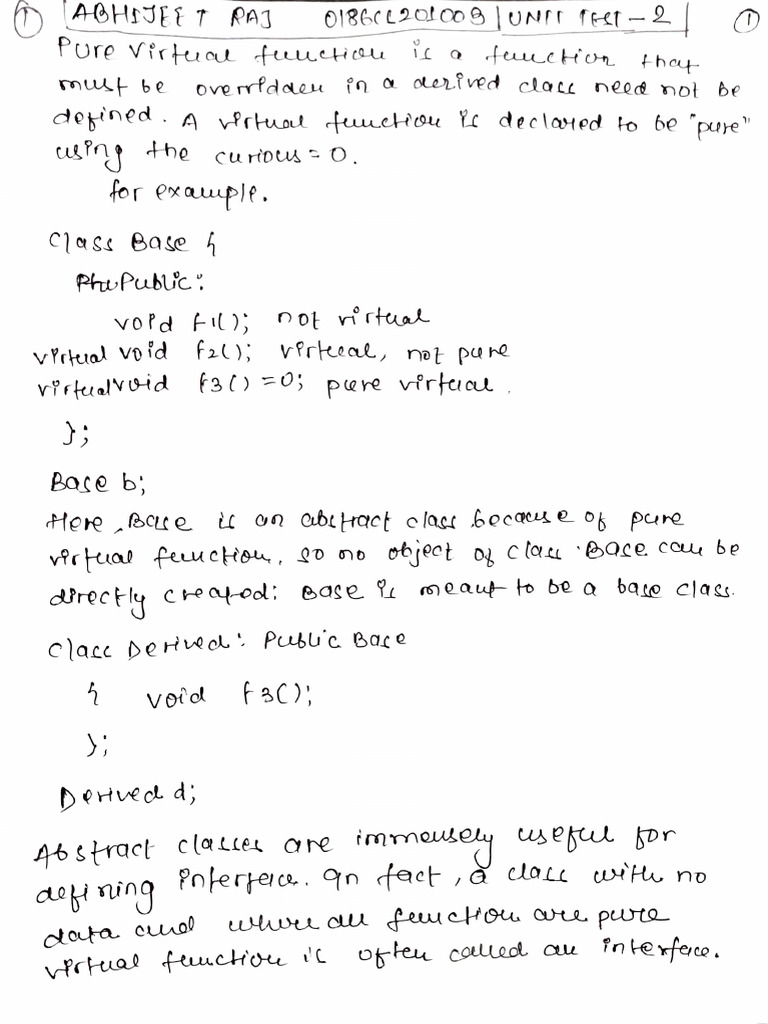 ① ABHIJEET RAJ 0186CL201009 UNIT TEST-2 ①
Pure virtual function is a function that
must be overridden in a derived class need not be
defined. A virtual function is declared to be "pure"
using the curious = 0.
for example.
Class Base {
Public:
void f1(); not virtual
virtual void f2(); virtual, not pure
virtual void f3() =0; pure virtual.
};
Base b;
Here, Base is an abstract class because of pure
virtual function, so no object of class Base can be
directly created: Base is meant to be a base class.
Class Derived: Public Base
{ void f3();
};
Derived d;
Abstract classes are immensely useful for
defining interface. In fact, a class with no
data and where all function are pure
virtual function is often called an interface.